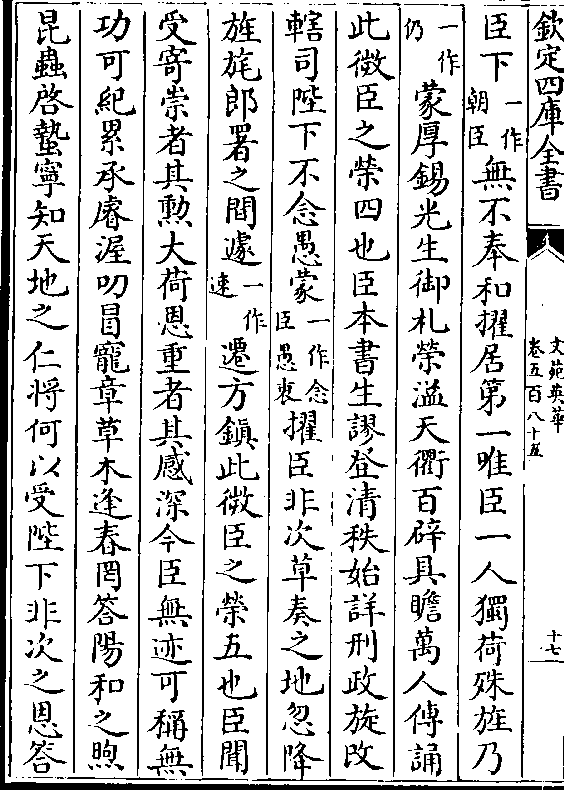 欽定四庫全書
文苑英華
卷五百八十五
十七
臣下一作朝臣無不奉和擢居第一唯臣一人獨荷殊旌乃
一作仍蒙厚錫光生御札榮溢天衢百辟具瞻萬人傳誦
此微臣之榮四也臣本書生謬登清秩始詳刑政旋改
轄司陛下不念愚蒙一作念臣愚衷擢臣非次草奏之地忽降
旌旄郎署之間遽一作速遷方鎮此微臣之榮五也臣聞
受寄崇者其勲大荷恩重者其感深今臣無迹可稱無
功可紀累承睿渥叨冒寵章草木逢春罔答陽和之煦
昆蟲啓蟄寧知天地之仁將何以受陛下非次之恩答